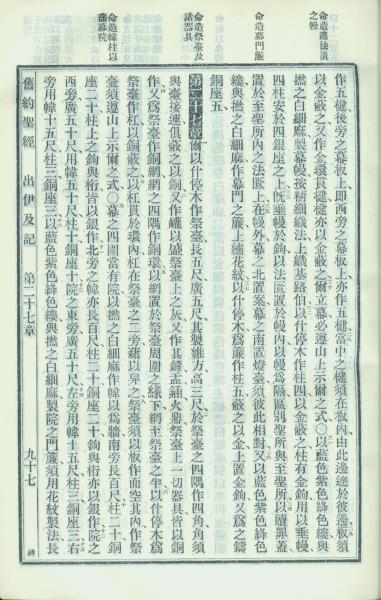 命造遮法匱之幔
作五楗後旁之幕板上即西旁之幕板上亦作五楗當中之楗須在板內由此邊達於彼邊板須
以金蔽之又作金環貫楗楗亦以金蔽之爾立幕必遵山上示爾之式○以藍色紫色絳色縷與
撚之白細麻製幔按精細織法上織基路伯以什停木作柱四以金蔽之柱有金鉤用以垂幔
四柱安於四銀座之上既垂幔於鉤以法匱置於幔內以幔為隔區別聖所與至聖所以贖罪蓋
命造幕門簾
置於至聖所內之法匱上在幔外幕之北置案幕之南置燈臺須彼此相對又以藍色紫色絳色
縷與撚之白細麻作幕門之簾上繡花紋以什停木為簾作柱五蔽之以金上置金鉤又為之鑄
銅座五
命造祭臺及諸器具
第二十七章爾以什停木作祭臺長五尺廣五尺其製維方高三尺於祭臺之四隅作四角角須
與臺接連俱蔽之以銅又作罐以盛祭臺上之灰又作其鏟盂鍤火鼎祭臺上一切器具皆以銅
作又為祭臺作銅網網之四隅作銅環以網置於祭臺周圍之緣下網至祭臺之半以什停木為
祭臺作杠以銅蔽之以杠貫於環內杠在祭臺之二旁藉以舁之祭臺須以板作面空其內作祭
命造幃柱以蔽幕院
臺須遵山上示爾之式○幕之四圍當有院以撚之白細麻作幃以為牆南旁長百尺柱二十銅
座二十柱上之鉤與桁皆以銀作北旁之幃亦長百尺柱二十銅座二十鉤與桁亦以銀作院之
西旁廣五十尺用幃五十尺柱十銅座十院之東旁廣五十尺左旁用幃十五尺柱三銅座三右
旁用幃十五尺柱三銅座三以藍色紫色絳色縷與撚之白細麻製院之門簾須用花紋製法長
舊約聖經 出伊及記 第二十七章 九十七 神